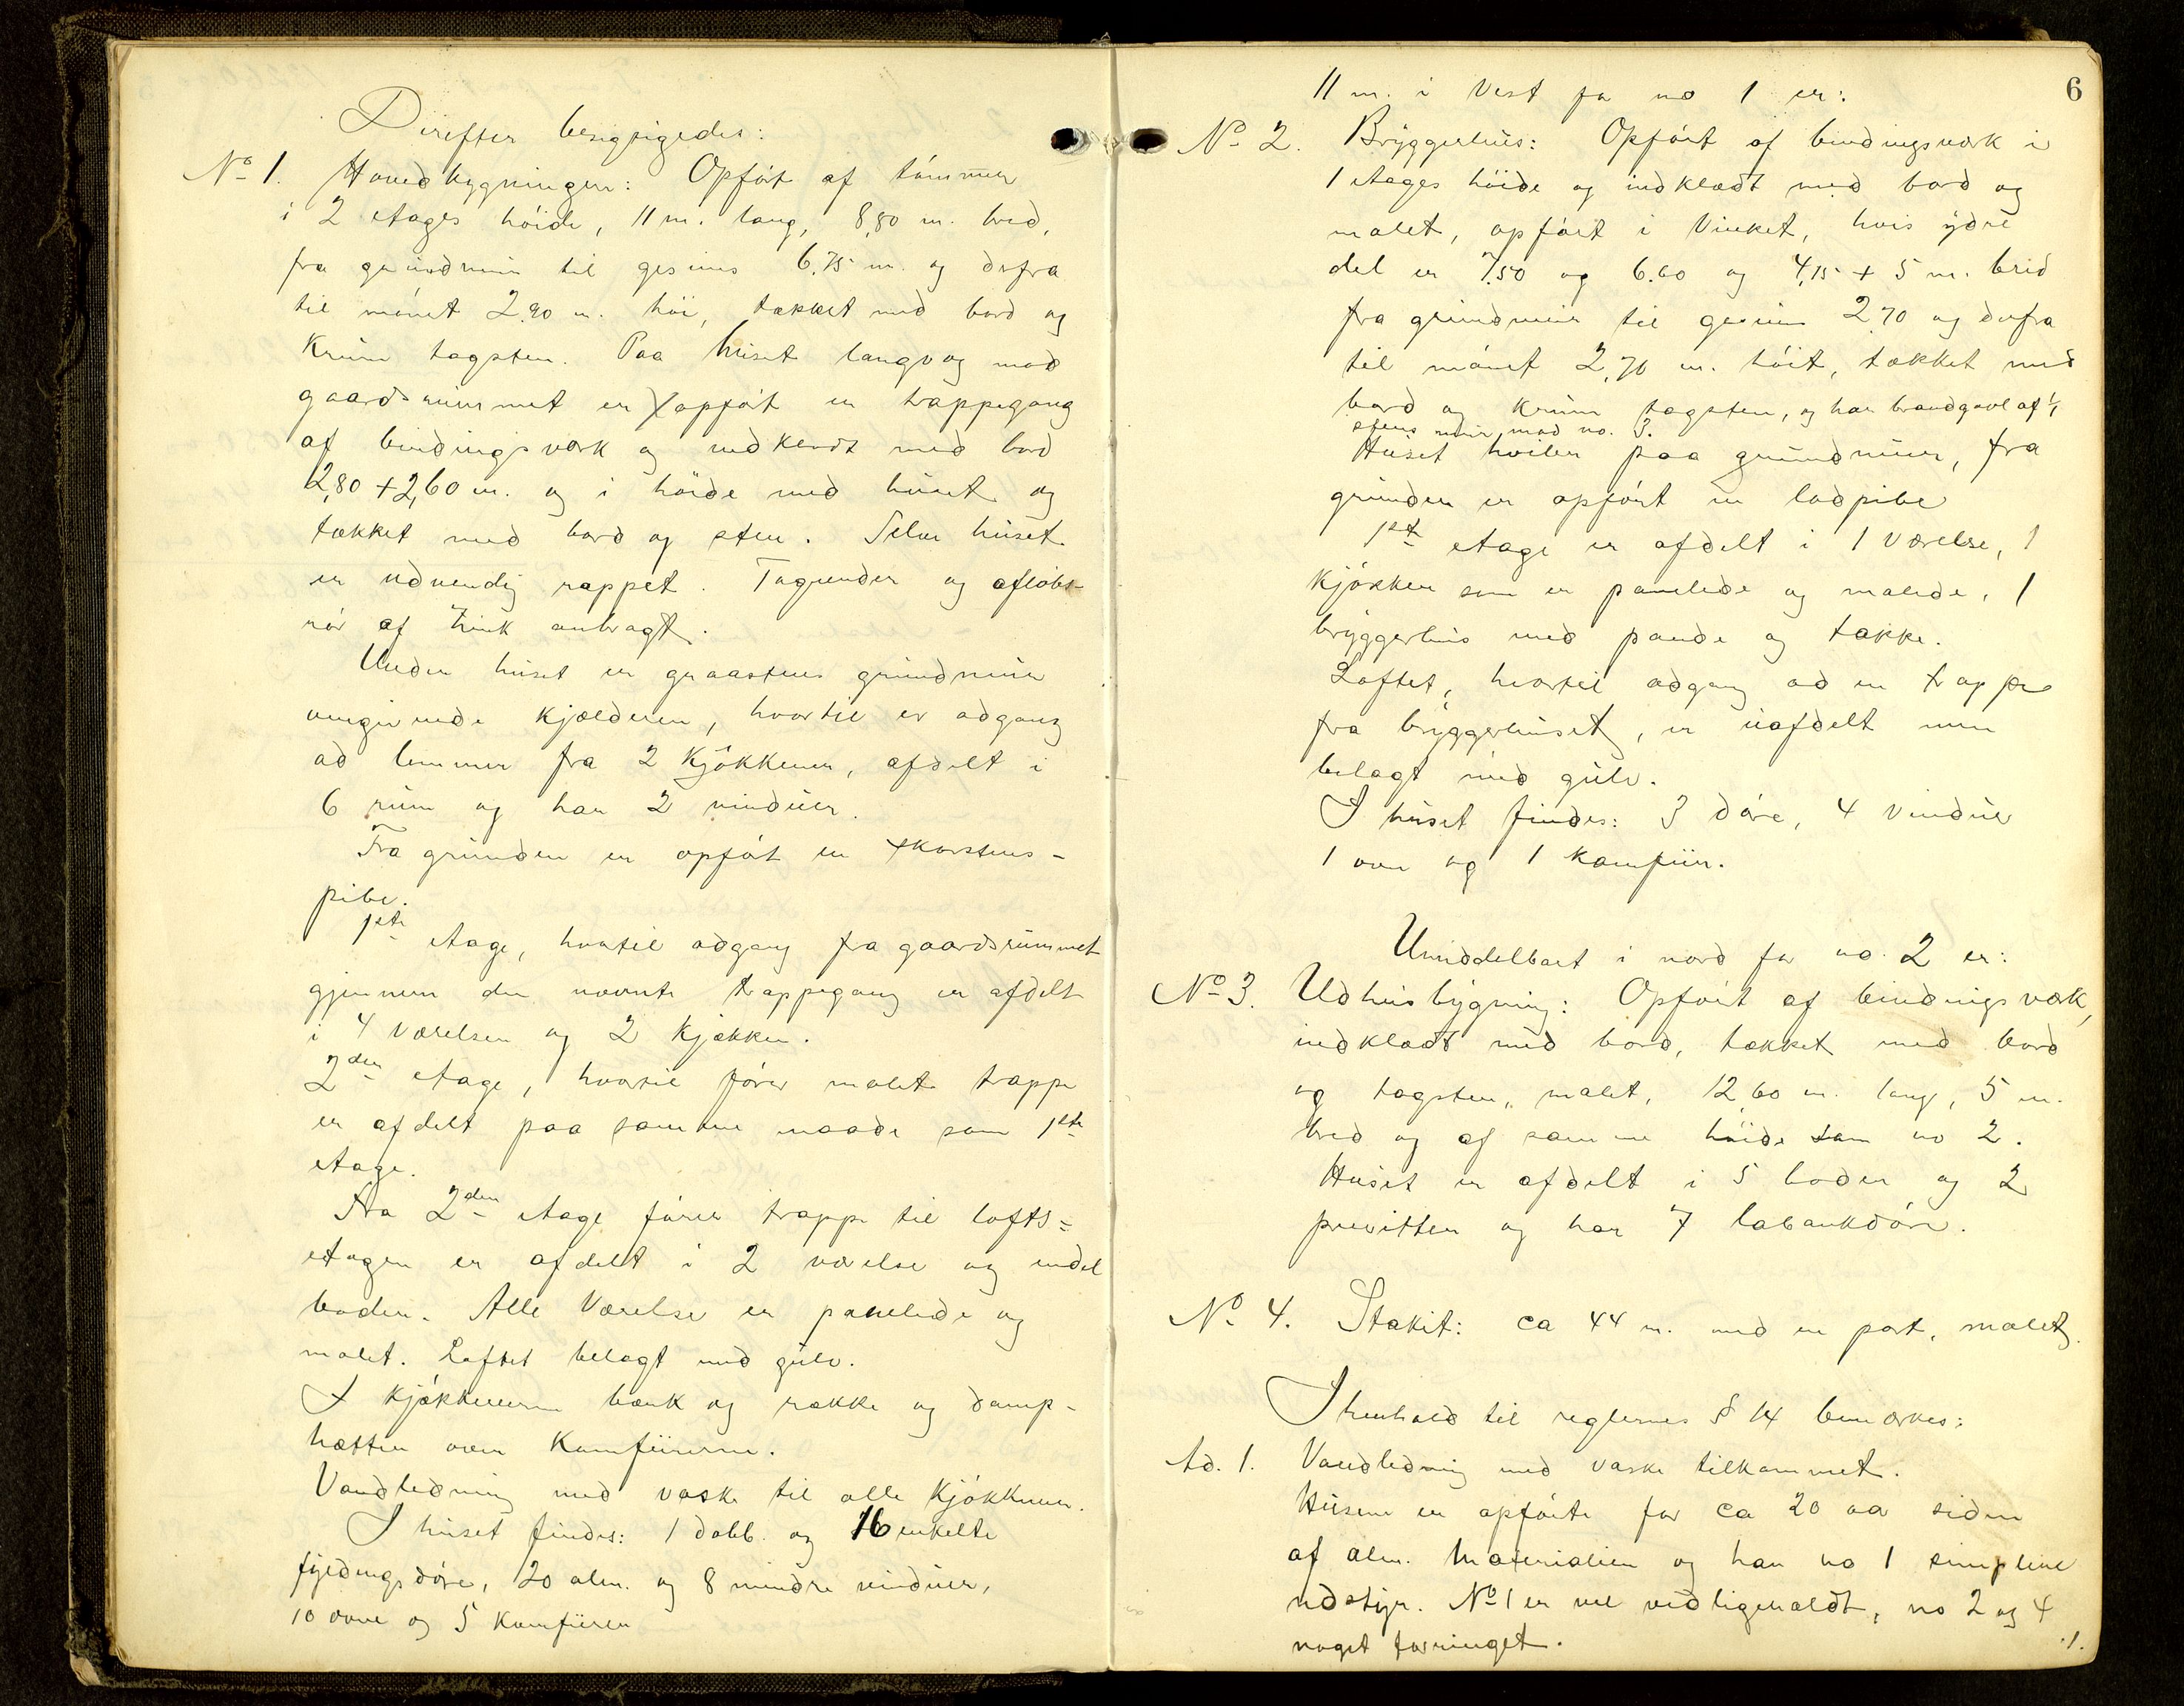 Derefter besigtigedes:
No 1. Hovedbygningen: Opført af tømmer
i 2 etages høide, 11 m. lang, 8,80 m. bred,
fra grundmur til gesims 6,75 m. og derfra
til mønet 2,90 m. høi, tækket med bord og
krum tagsten. Paa huset langvæg mod
gaardsrummet er opført en trappegang
af bindingsværk og indklædt med bord
2,80 + 2,60 m. og i høide med huset og
tækket med bord og sten. Selve huset
er udvendig rappet. Tagrender og afløbs-
rør af zink anbragt.
Under huset er graastens grundmur
omgivende kjælderen, hvortil er adgang
ad lemmer fra 2 kjøkkener, afdelt i
6 rum og har 2 vinduer.
Fra grunden er opført en skorstens-
pibe.
1ste etage, hvortil adgang fra gaardsrummet
gjennem den nævnte trappegang er afdelt
i 4 værelser og 2 kjøkken.
2den etage, hvortil fører malet trappe
er afdelt paa samme maade som 1ste
etage.
Fra 2den etage fører trappe til lofts=
etagen er afdelt i 2 værelse og endel
boder. Alle værelse er panelede og
malet. Loftet belagt med gulv.
I kjøkkenerne bænk og række og damp-
hætter over kamfurerne.
Vandledning med vaske til alle kjøkkener.
I huset findes: 1 dobb. og 16 enkelte
fyldingsdøre, 20 alm. og 8 mindre vinduer,
10 ovne og 5 kamfurer
6
11 m. i vest for no 1 er:
No 2. Bryggerhus: Opført af bindingsværk i
1 etages høide og indklædt med bord og
malet, opført i vinket, hvis ydre
del er 7.50 og 6.60 og 4,15 + 5 m. bred
fra grundmur til gesims 2,70 og derfra
til mønet 2,70 m. høit, tækket med
bord og krum tagsten, og har brandgavl af 1/1
stens mur mod no. 3.
Huset hviler paa grundmur, fra
grunden er opført en lodpibe
1ste etage er afdelt i 1 værelse, 1
kjøkken som er panelede og malede, 1
bryggerhus med pande og takke.
Loftet, hvortil adgang ad en trappe
fra bryggerhuset, er uafdelt men
belagt med gulv.
I huset findes: 3 døre, 4 vinduer
1 ovn og 1 kamfur.
Umiddelbart i nord for no. 2 er:
No 3. Udhusbygning: Opført af bindingsværk,
indklædt med bord, tækket med bord
og tagsten, malet, 12,60 m. lang, 5 m.
bred og af samme høide som no 2.
Huset er afdelt i 5 boder og 2
prevetter og har 7 labankdøre.
No 4. Stakit: ca 44 m. med en port, malet.
I henhold til reglernes § 14 bemærkes:
Ad. 1. Vandledning med vaske tilkommet.
Husene er opførte for ca 20 aar siden
af alm. materialier og har no 1 simplere
udstyr. No 1 er vel vedligeholdt, no 2 og 4
noget forringet.
./.